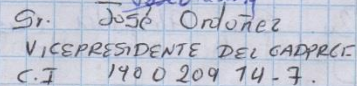 Sr. José Ordoñez
VICEPRESIDENTE DEL GADPRCE
C.I 140020914-7.